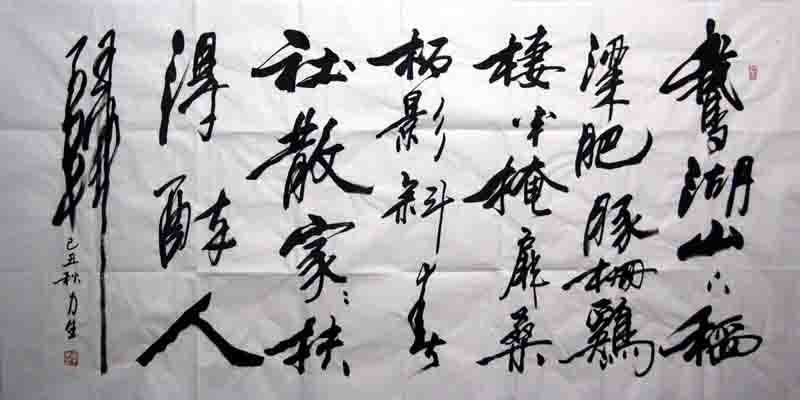 鵝湖山下稻
粱肥豚柵鷄
棲半掩扉桑
柘影斜春
社散家々扶
得醉人
歸
己丑秋力生